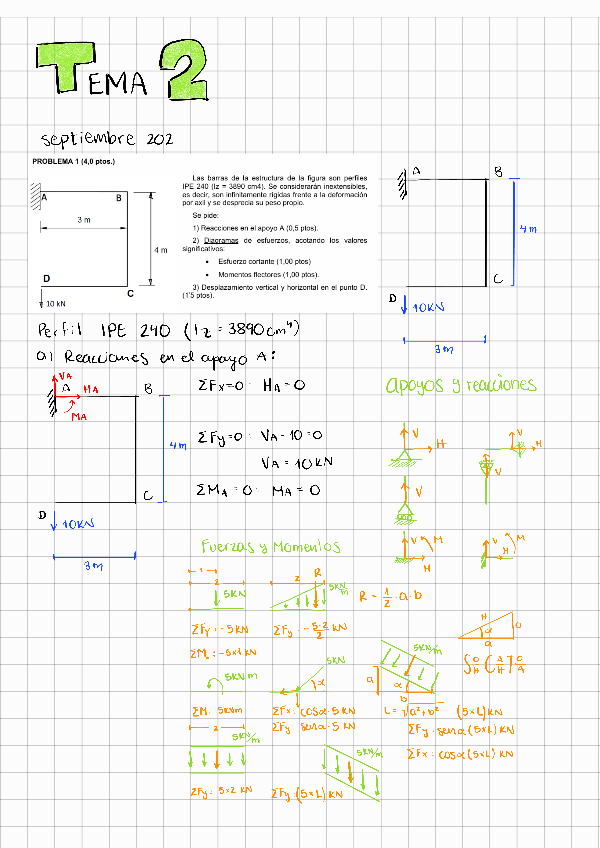 TEMA 2
septiembre 202
PROBLEMA 1 (4,0 ptos.)
A
B
3 m
4 m
D
C
10 kN
Las barras de la estructura de la figura son perfiles
IPE 240 (Iz = 3890 cm4). Se considerarán inextensibles,
es decir, son infinitamente rígidas frente a la deformación
por axil y se desprecia su peso propio.
Se pide:
1) Reacciones en el apoyo A (0,5 ptos).
2) Diagramas de esfuerzos, acotando los valores
significativos:
• Esfuerzo cortante (1,00 ptos)
• Momentos flectores (1,00 ptos).
3) Desplazamiento vertical y horizontal en el punto D.
(1'5 ptos).
A
B
4 m
C
D
10KN
3 m
Perfil IPE 240 (Iz = 3890cm⁴)
a) Reacciones en el apoyo A:
VA
A
HA
B
MA
4 m
C
D
10KN
3 m
ΣFx=0 HA=0
ΣFy=0 VA-10=0
VA=10KN
ΣMA=0 MA=0
Apoyos y reacciones
V
H
V
H
V
V
V
M
H
V
M
H
Fuerzas y Momentos
1
2
5KN
ΣFy:-5KN
ΣM:-5x1KN
2
R
5KN/m
R=1/2·a·b
ΣFy:-5·2/2 KN
5KNm
ΣM 5KNm
5KN
α
ΣFx:cosα·5KN
ΣFy senα·5KN
H
O
α
a
5KN/m
a
α
b
L=√a²+b² (5xL)KN
ΣFy:senα(5xL)KN
ΣFx:cosα(5xL)KN
2
5KN/m
ΣFy:5x2KN
5KN/m
ΣFy:(5xL)KN